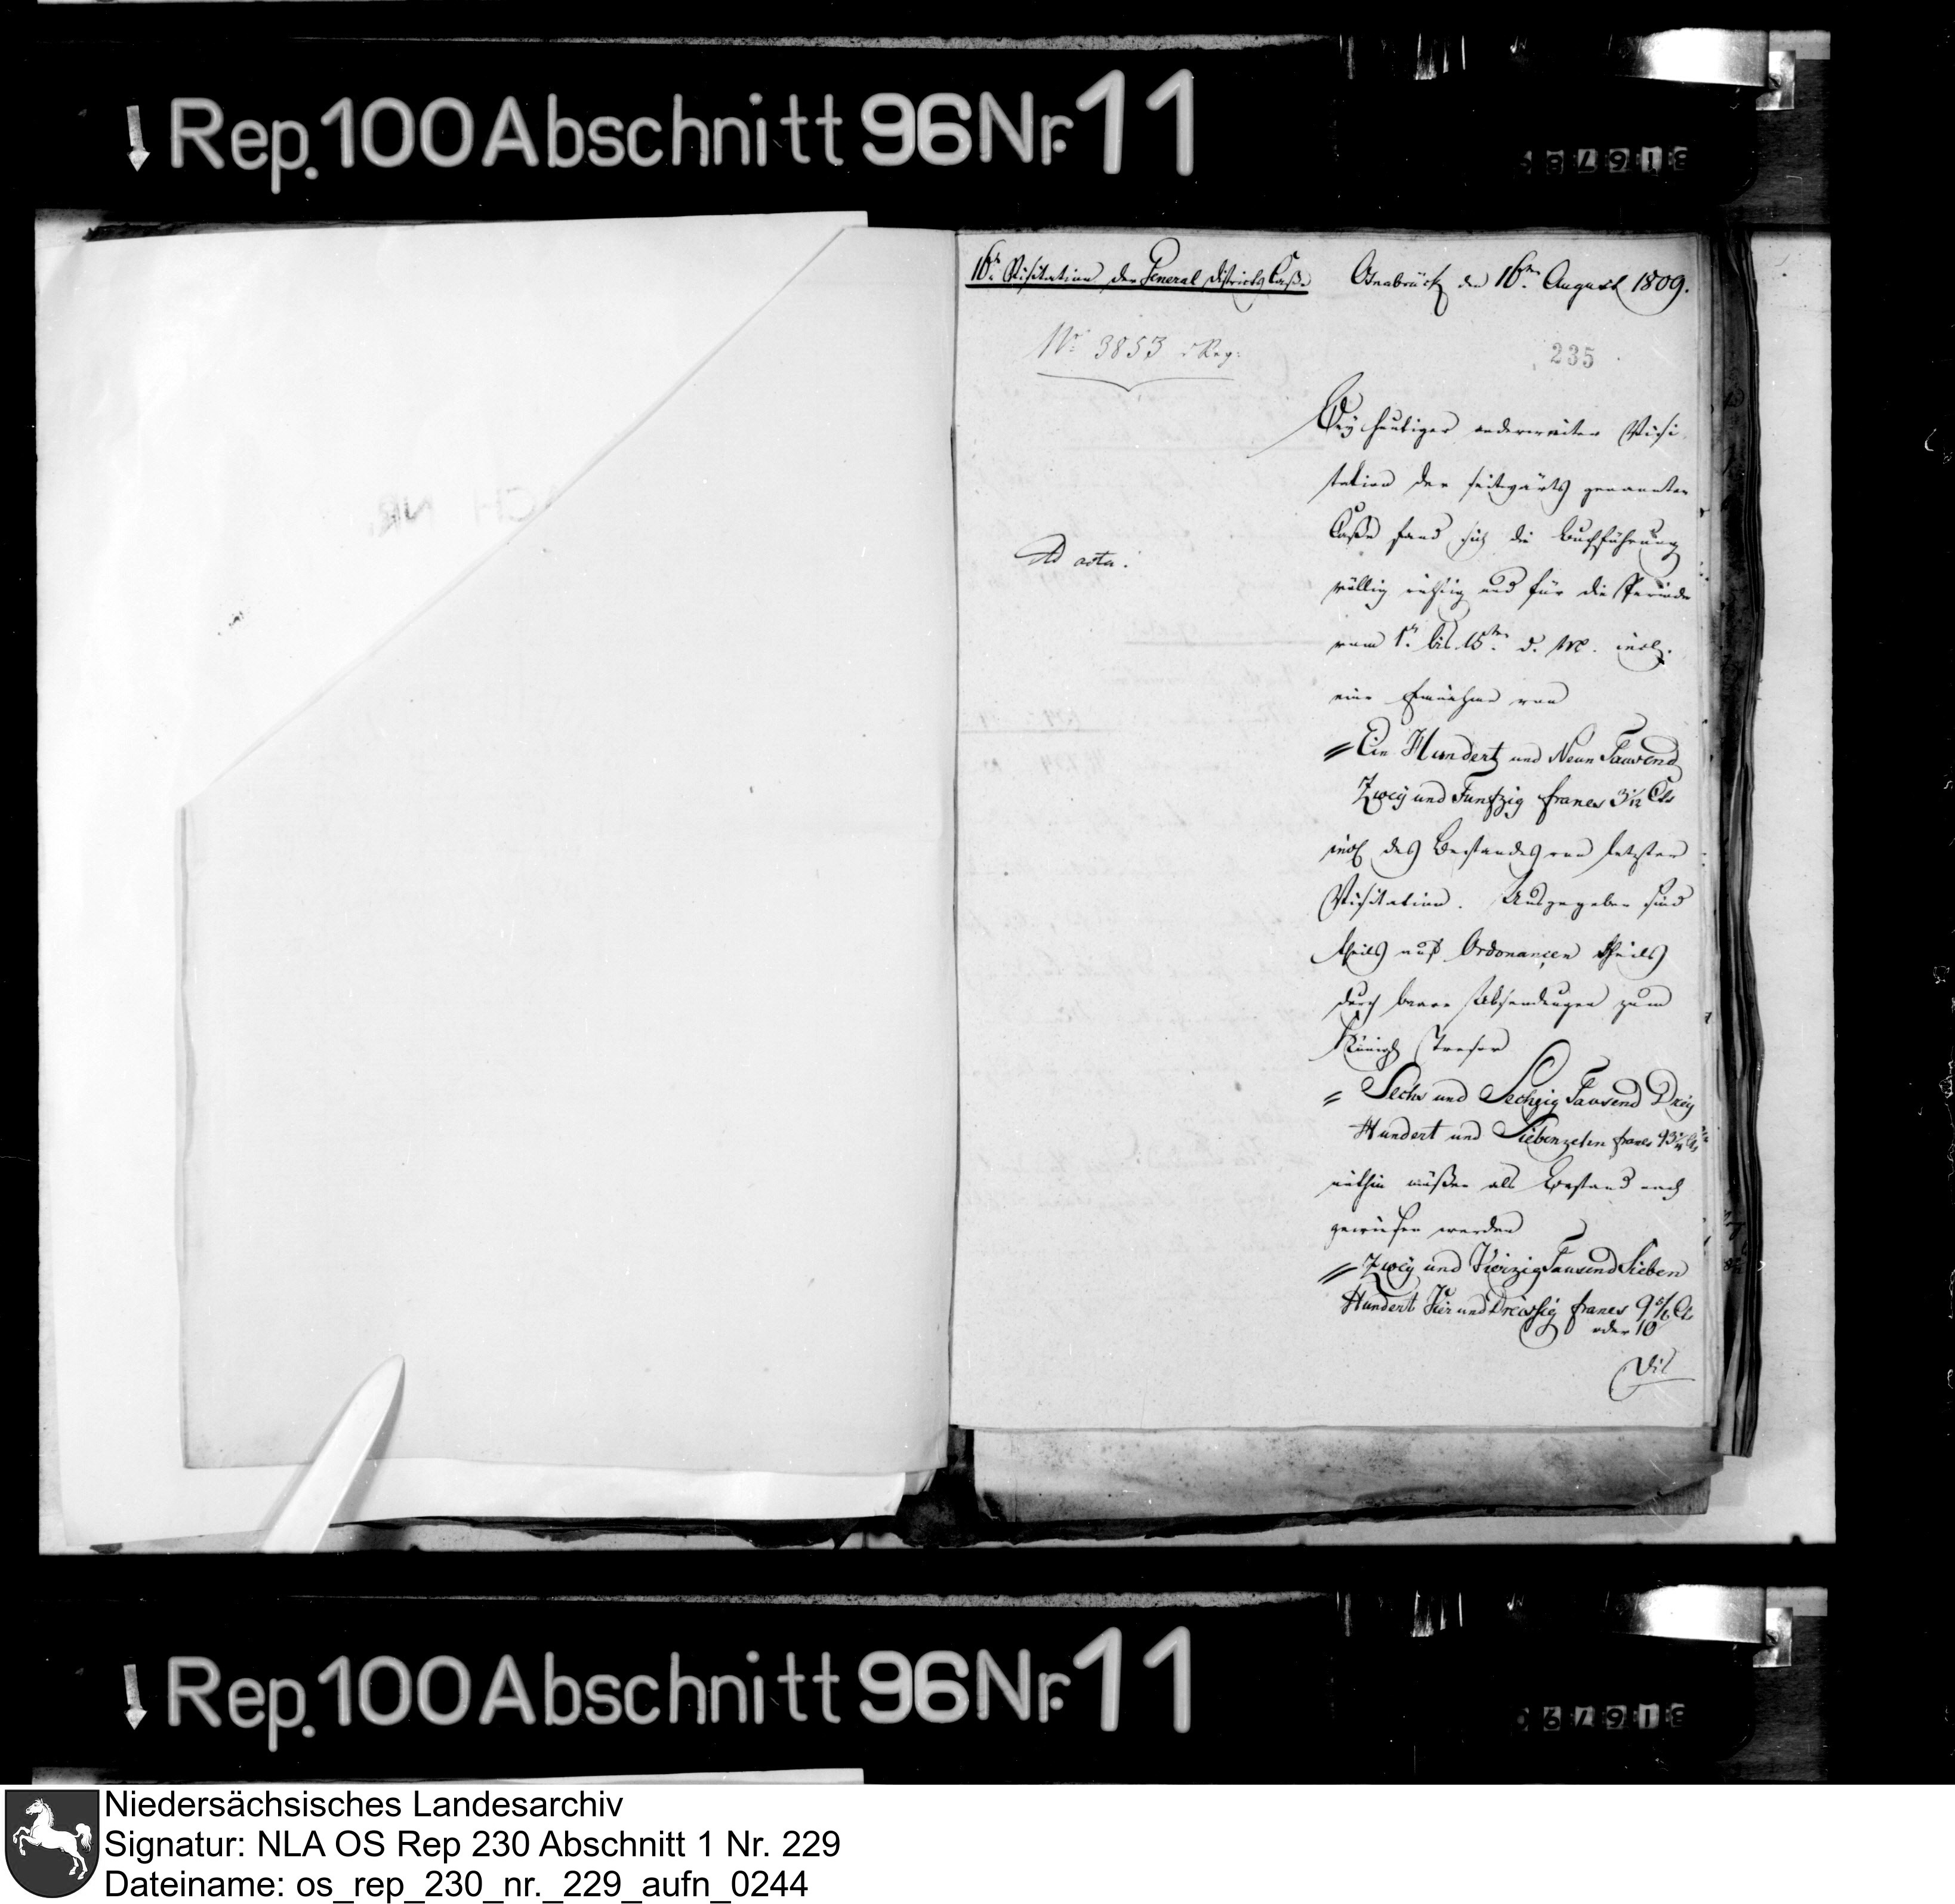 Rep. 100 Abschnitt 96 Nr. 11
16te Visitation der General Districts Casse
Osnabrück den 16ten August 1809.
No 3853 Reg:
235
Ad acta.
Bey heutiger anderweiter Visi
tation der seitwärts genannten
Casse fand sich die Buchführung
völlig richtig und für die Periode
vom 1t bis 15ten d. M. incl.
eine Einnahme von
Ein Hundert und Neun Tausend
Zwey und Funfzig francs 3 1/12 Cts
incl des Bestandes von letzter
Visitation. Ausgegeben sind
theils auf Ordonançen theils
durch baare Absendungen zum
Königl Tresor
Sechs und Sechzig Tausend Drey
Hundert und Siebenzehn francs 93 Cts
mithin müßen als Bestand nach
gewiesen werden
Zwey und Vierzig Tausend Sieben
Hundert Vier und Dreissig francs 9 5/6 Cts
oder 10
Rep. 100 Abschnitt 96 Nr. 11
Niedersächsisches Landesarchiv
Signatur: NLA OS Rep 230 Abschnitt 1 Nr. 229
Dateiname: os_rep_230_nr._229_aufn_0244